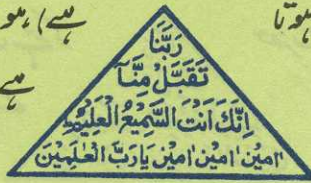 ہوتا
ہے)، ہو
ہے
رَبَّنَا
تَقَبَّلْ مِنَّآ
اِنَّكَ اَنْتَ السَّمِيْعُ الْعَلِيْمُ
اٰمِيْن اٰمِيْن اٰمِيْن يَارَبَّ الْعٰلَمِيْنَ